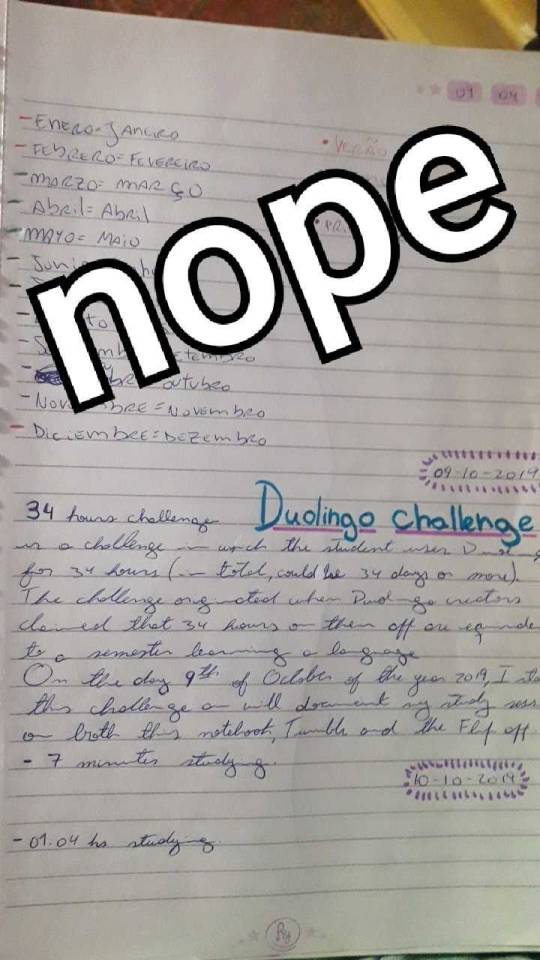 01 04
- ENERO=JANEIRO
- FEBRERO=FEVEREIRO
- MARZO=MARÇO
- Abril=Abril
- MAYO=MAIO
• VERÃO
nope
Outubro
- Novembro
- DICIEMBRE=DEZEMBRO
09-10-2019
Duolingo challenge
34 hours challenge
is a challenge in which the student uses
for 34 hours (in total, could be 34 days or more).
The challenge originated when Duolingo creators
claimed that 34 hours on them off are
to a semester learning a language
On the day 9th of October of the year 2019, I
this challenge an will document my study
on both this notebook, Tumblr and the Flip off.
- 7 minutes studying.
10-10-2019
- 01.04 hs studying.